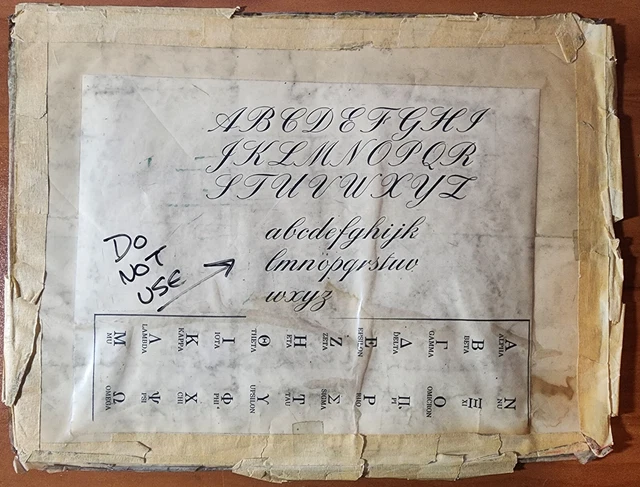 ABCDEFGHI
JKLMNOPQR
STUVWXYZ
abcdefghijk
lmnopqrstuv
wxyz
DO
NOT
USE
Α Ν
ALPHA NU
Β Ξ
BETA XI
Γ Ο
GAMMA OMICRON
Δ Π
DELTA PI
Ε Ρ
EPSILON RHO
Ζ Σ
ZETA SIGMA
Η Τ
ETA TAU
Θ Υ
THETA UPSILON
Ι Φ
IOTA PHI
Κ Χ
KAPPA CHI
Λ Ψ
LAMBDA PSI
Μ Ω
MU OMEGA